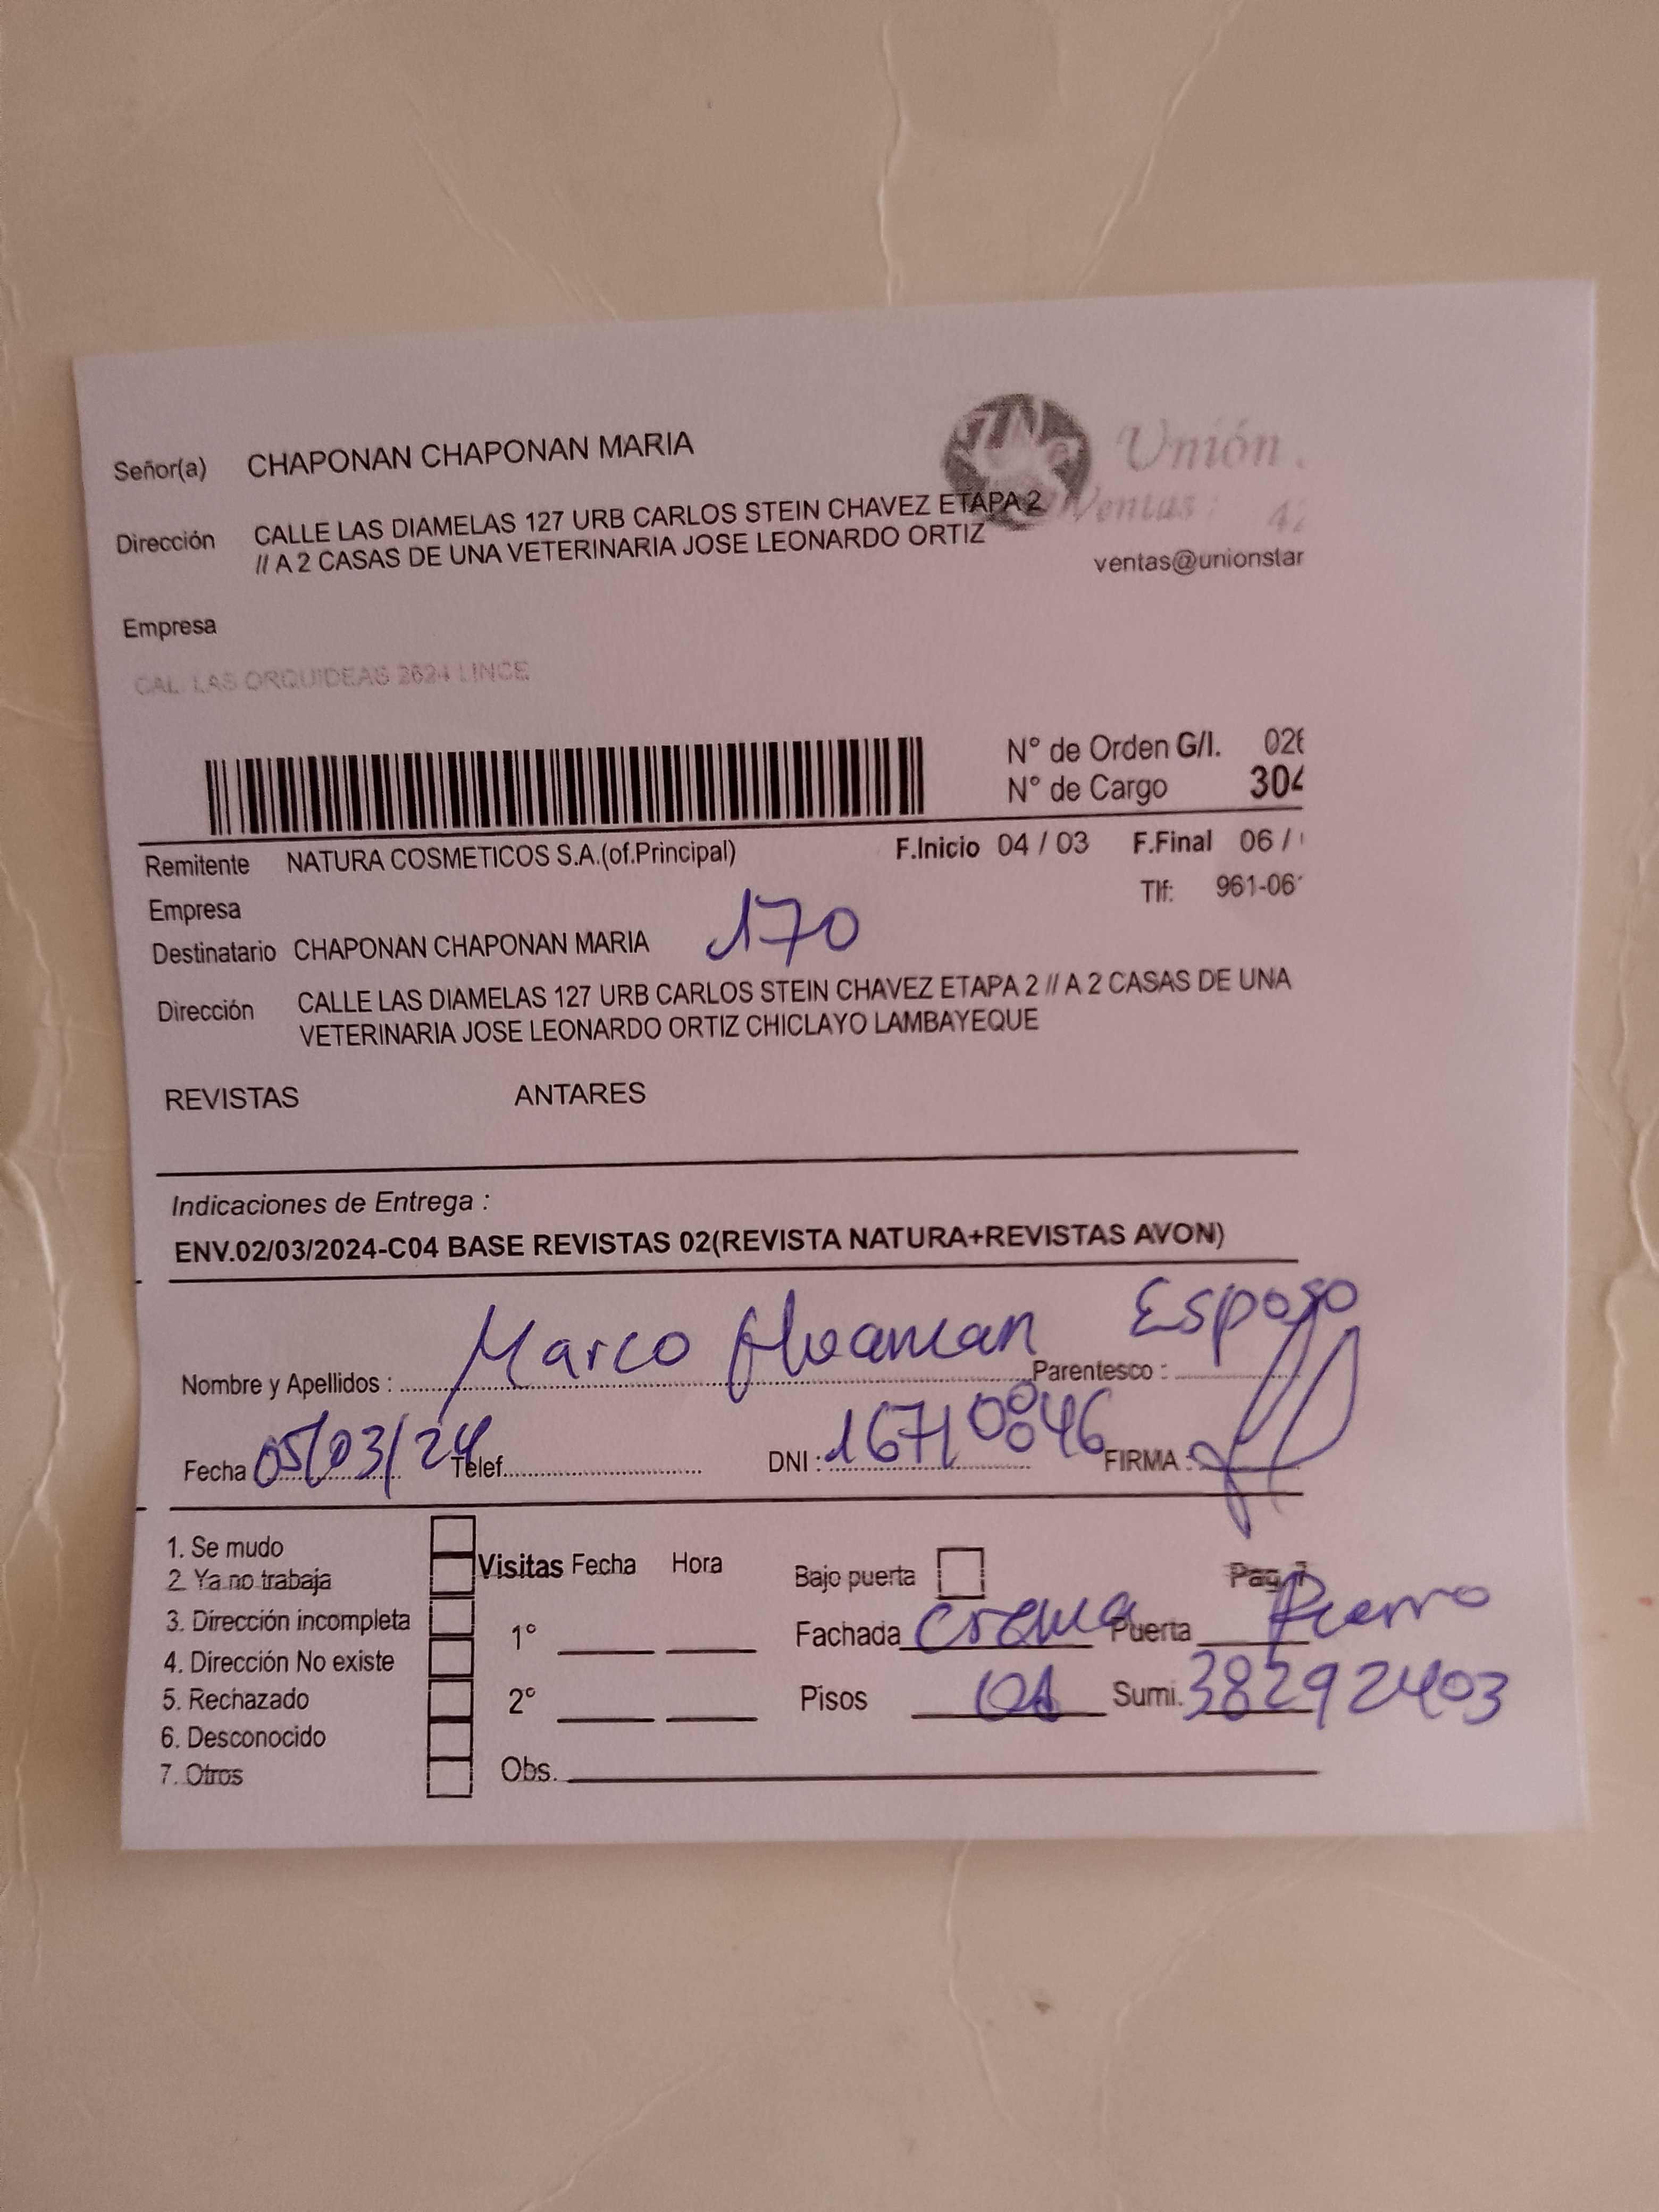 Señor(a) CHAPONAN CHAPONAN MARIA
Unión
Dirección CALLE LAS DIAMELAS 127 URB CARLOS STEIN CHAVEZ ETAPA 2
// A 2 CASAS DE UNA VETERINARIA JOSE LEONARDO ORTIZ
Ventas: 42
ventas@unionstar
Empresa
CAL. LAS ORQUIDEAS 2624 LINCE
N° de Orden G/I. 026
N° de Cargo 304
Remitente NATURA COSMETICOS S.A.(of.Principal) F.Inicio 04 / 03 F.Final 06 /
Tlf: 961-06
Empresa
Destinatario CHAPONAN CHAPONAN MARIA 170
Dirección CALLE LAS DIAMELAS 127 URB CARLOS STEIN CHAVEZ ETAPA 2 // A 2 CASAS DE UNA
VETERINARIA JOSE LEONARDO ORTIZ CHICLAYO LAMBAYEQUE
REVISTAS ANTARES
Indicaciones de Entrega :
ENV.02/03/2024-C04 BASE REVISTAS 02(REVISTA NATURA+REVISTAS AVON)
Nombre y Apellidos : Marco Huaman Parentesco : Esposo
Fecha 05/03/24 Telef. DNI : 16710846 FIRMA :
1. Se mudo
2. Ya no trabaja
3. Dirección incompleta
4. Dirección No existe
5. Rechazado
6. Desconocido
7. Otros
Visitas Fecha Hora
1°
2°
Obs.
Bajo puerta Pag
Fachada crema Puerta Fierro
Pisos 01 Sumi. 38292403